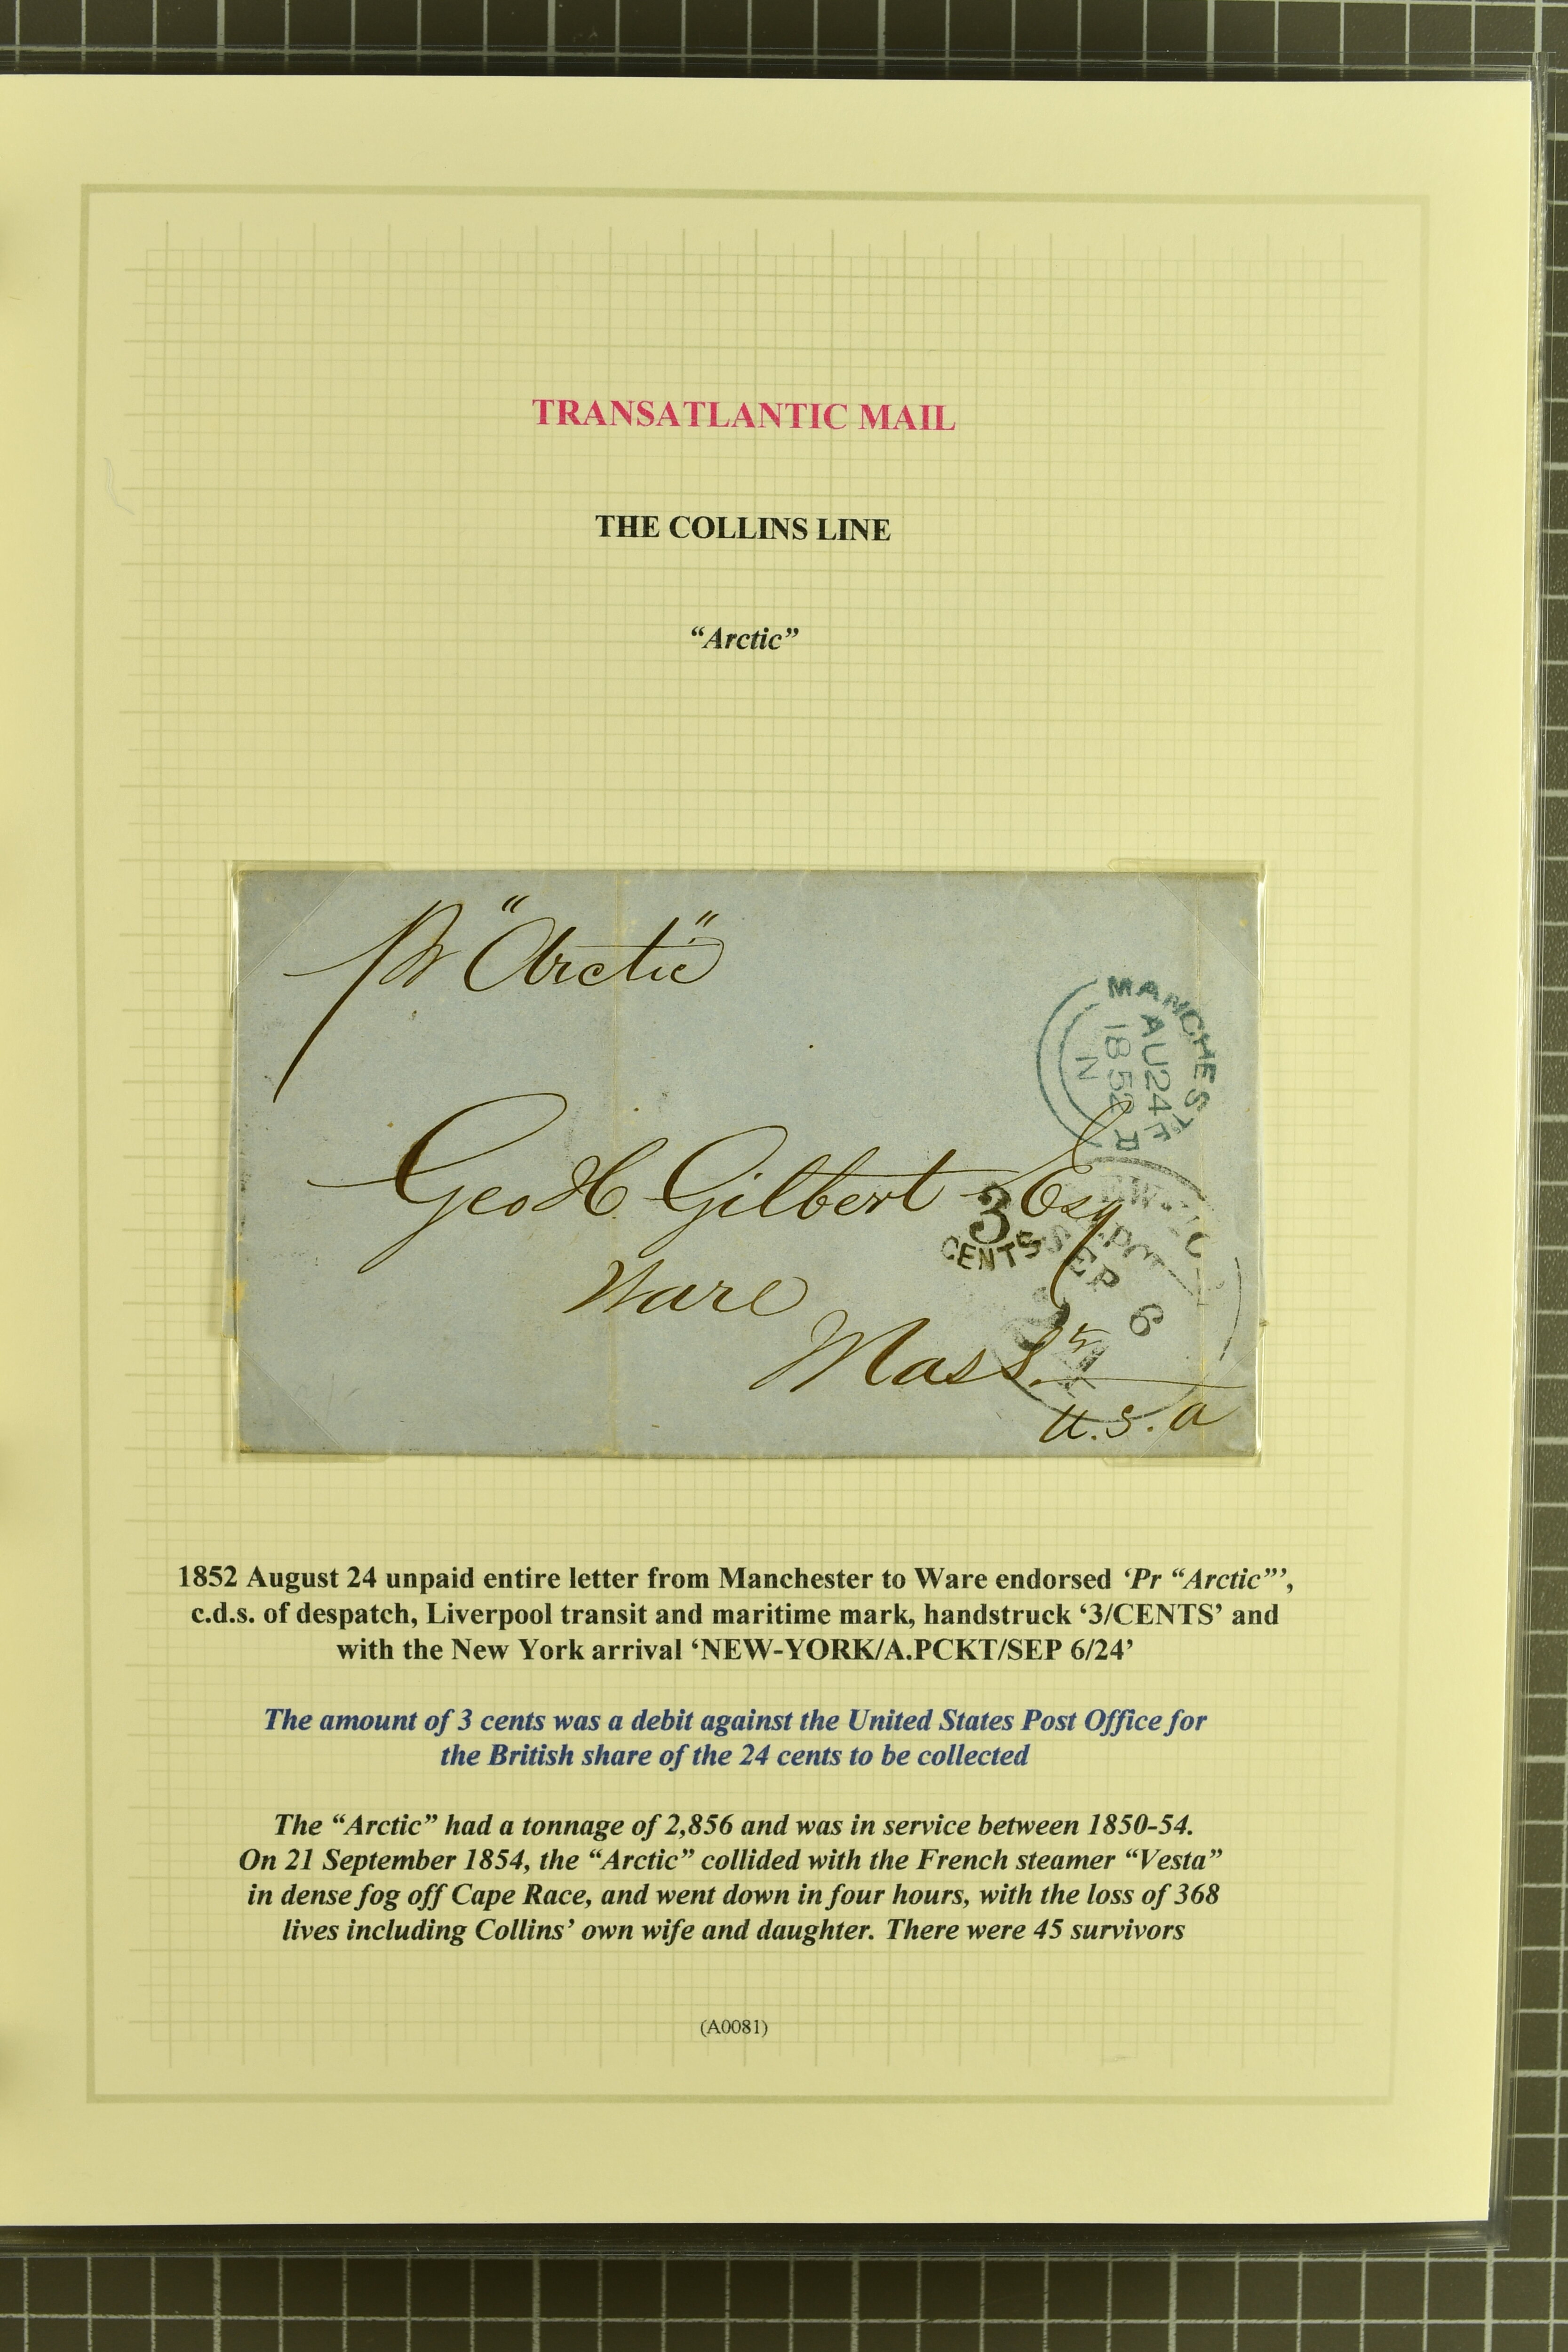 TRANSATLANTIC MAIL
THE COLLINS LINE
“Arctic”
Pr "Arctic"
MANCHESTER
AU24
1852
N
Geo H Gilbert Esq
3
CENTS
SEP 6
Ware
Mass.
U.S.a
1852 August 24 unpaid entire letter from Manchester to Ware endorsed ‘Pr “Arctic”’,
c.d.s. of despatch, Liverpool transit and maritime mark, handstruck ‘3/CENTS’ and
with the New York arrival ‘NEW-YORK/A.PCKT/SEP 6/24’
The amount of 3 cents was a debit against the United States Post Office for
the British share of the 24 cents to be collected
The “Arctic” had a tonnage of 2,856 and was in service between 1850-54.
On 21 September 1854, the “Arctic” collided with the French steamer “Vesta”
in dense fog off Cape Race, and went down in four hours, with the loss of 368
lives including Collins’ own wife and daughter. There were 45 survivors
(A0081)